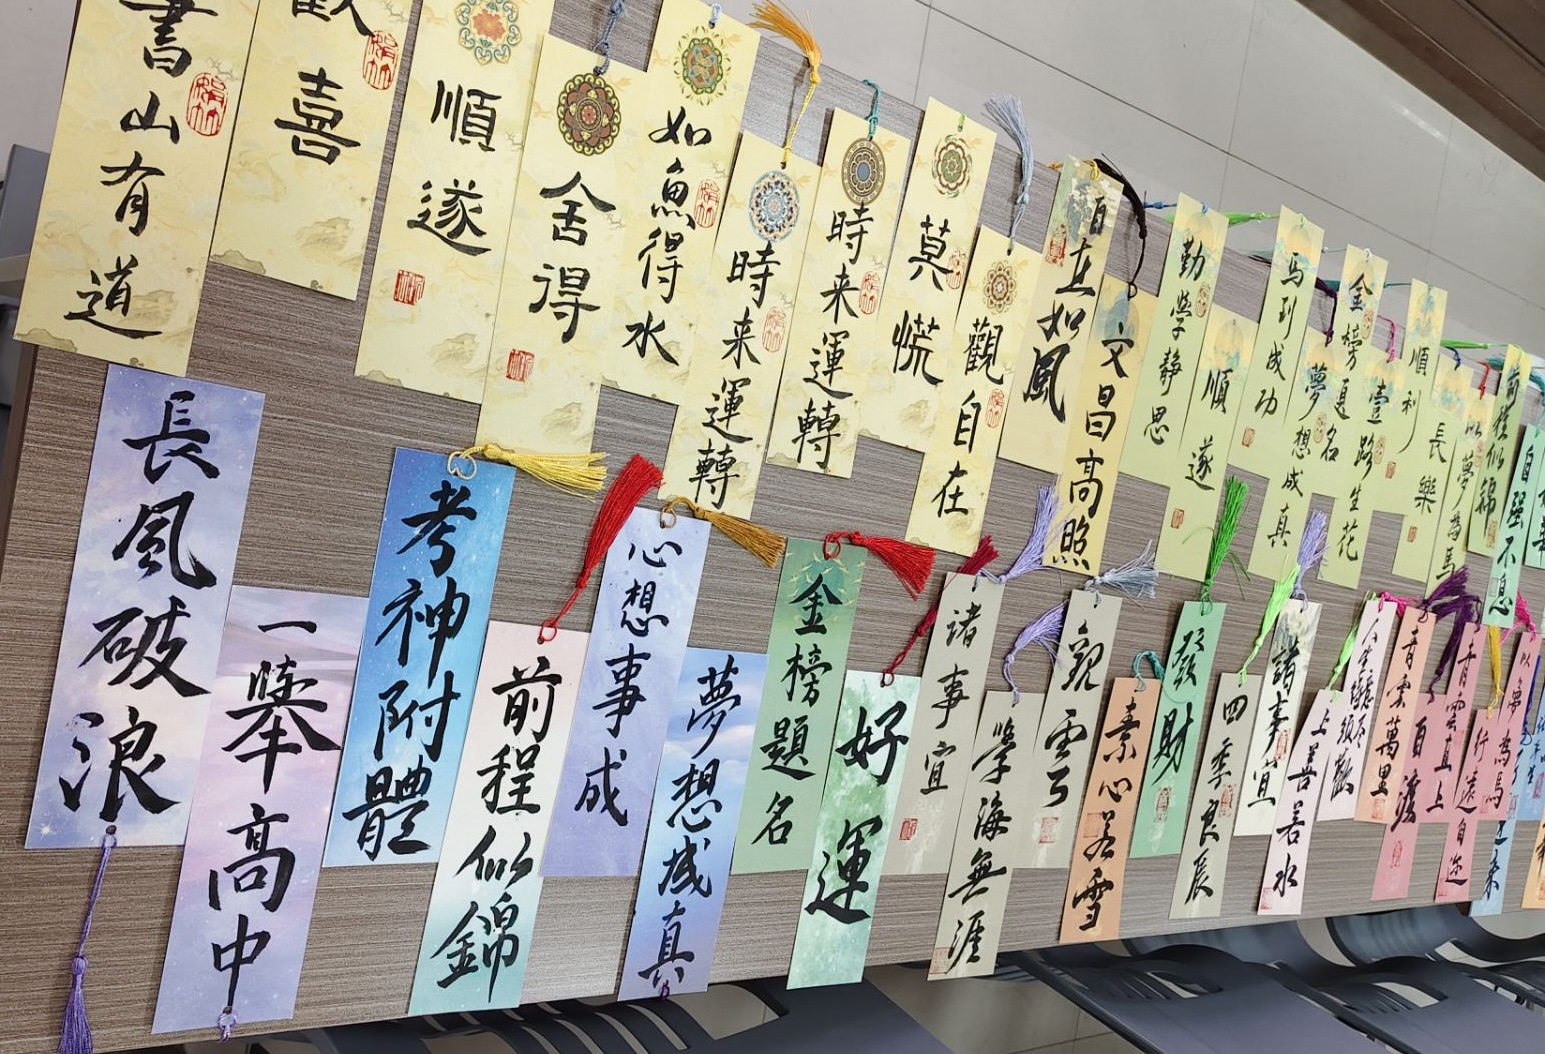 書山有道
歡喜
順遂
舍得
如魚得水
時来運轉
時来運轉
莫慌
觀自在
自在如風
文昌高照
勤學静思
順遂
馬到成功
夢想成真
金榜題名
壹路生花
順利
長樂
以夢為馬
自强不息
長風破浪
一舉高中
考神附體
前程似錦
心想事成
夢想成真
金榜題名
好運
諸事宜
學海無涯
觀雲
素心若雪
發財
四季良辰
諸事宜
上善若水
青雲萬里
自渡
青雲直上
行遠自迩
以夢為馬